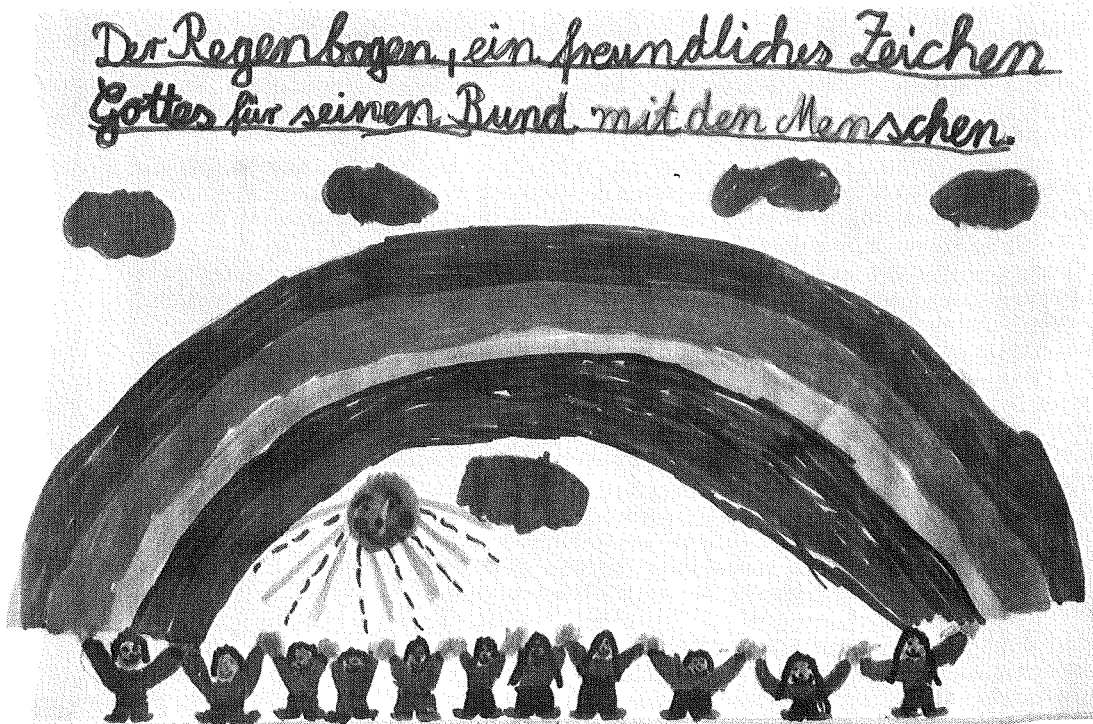 Der Regenbogen, ein freundliches Zeichen
Gottes für seinen Bund mit den Menschen.